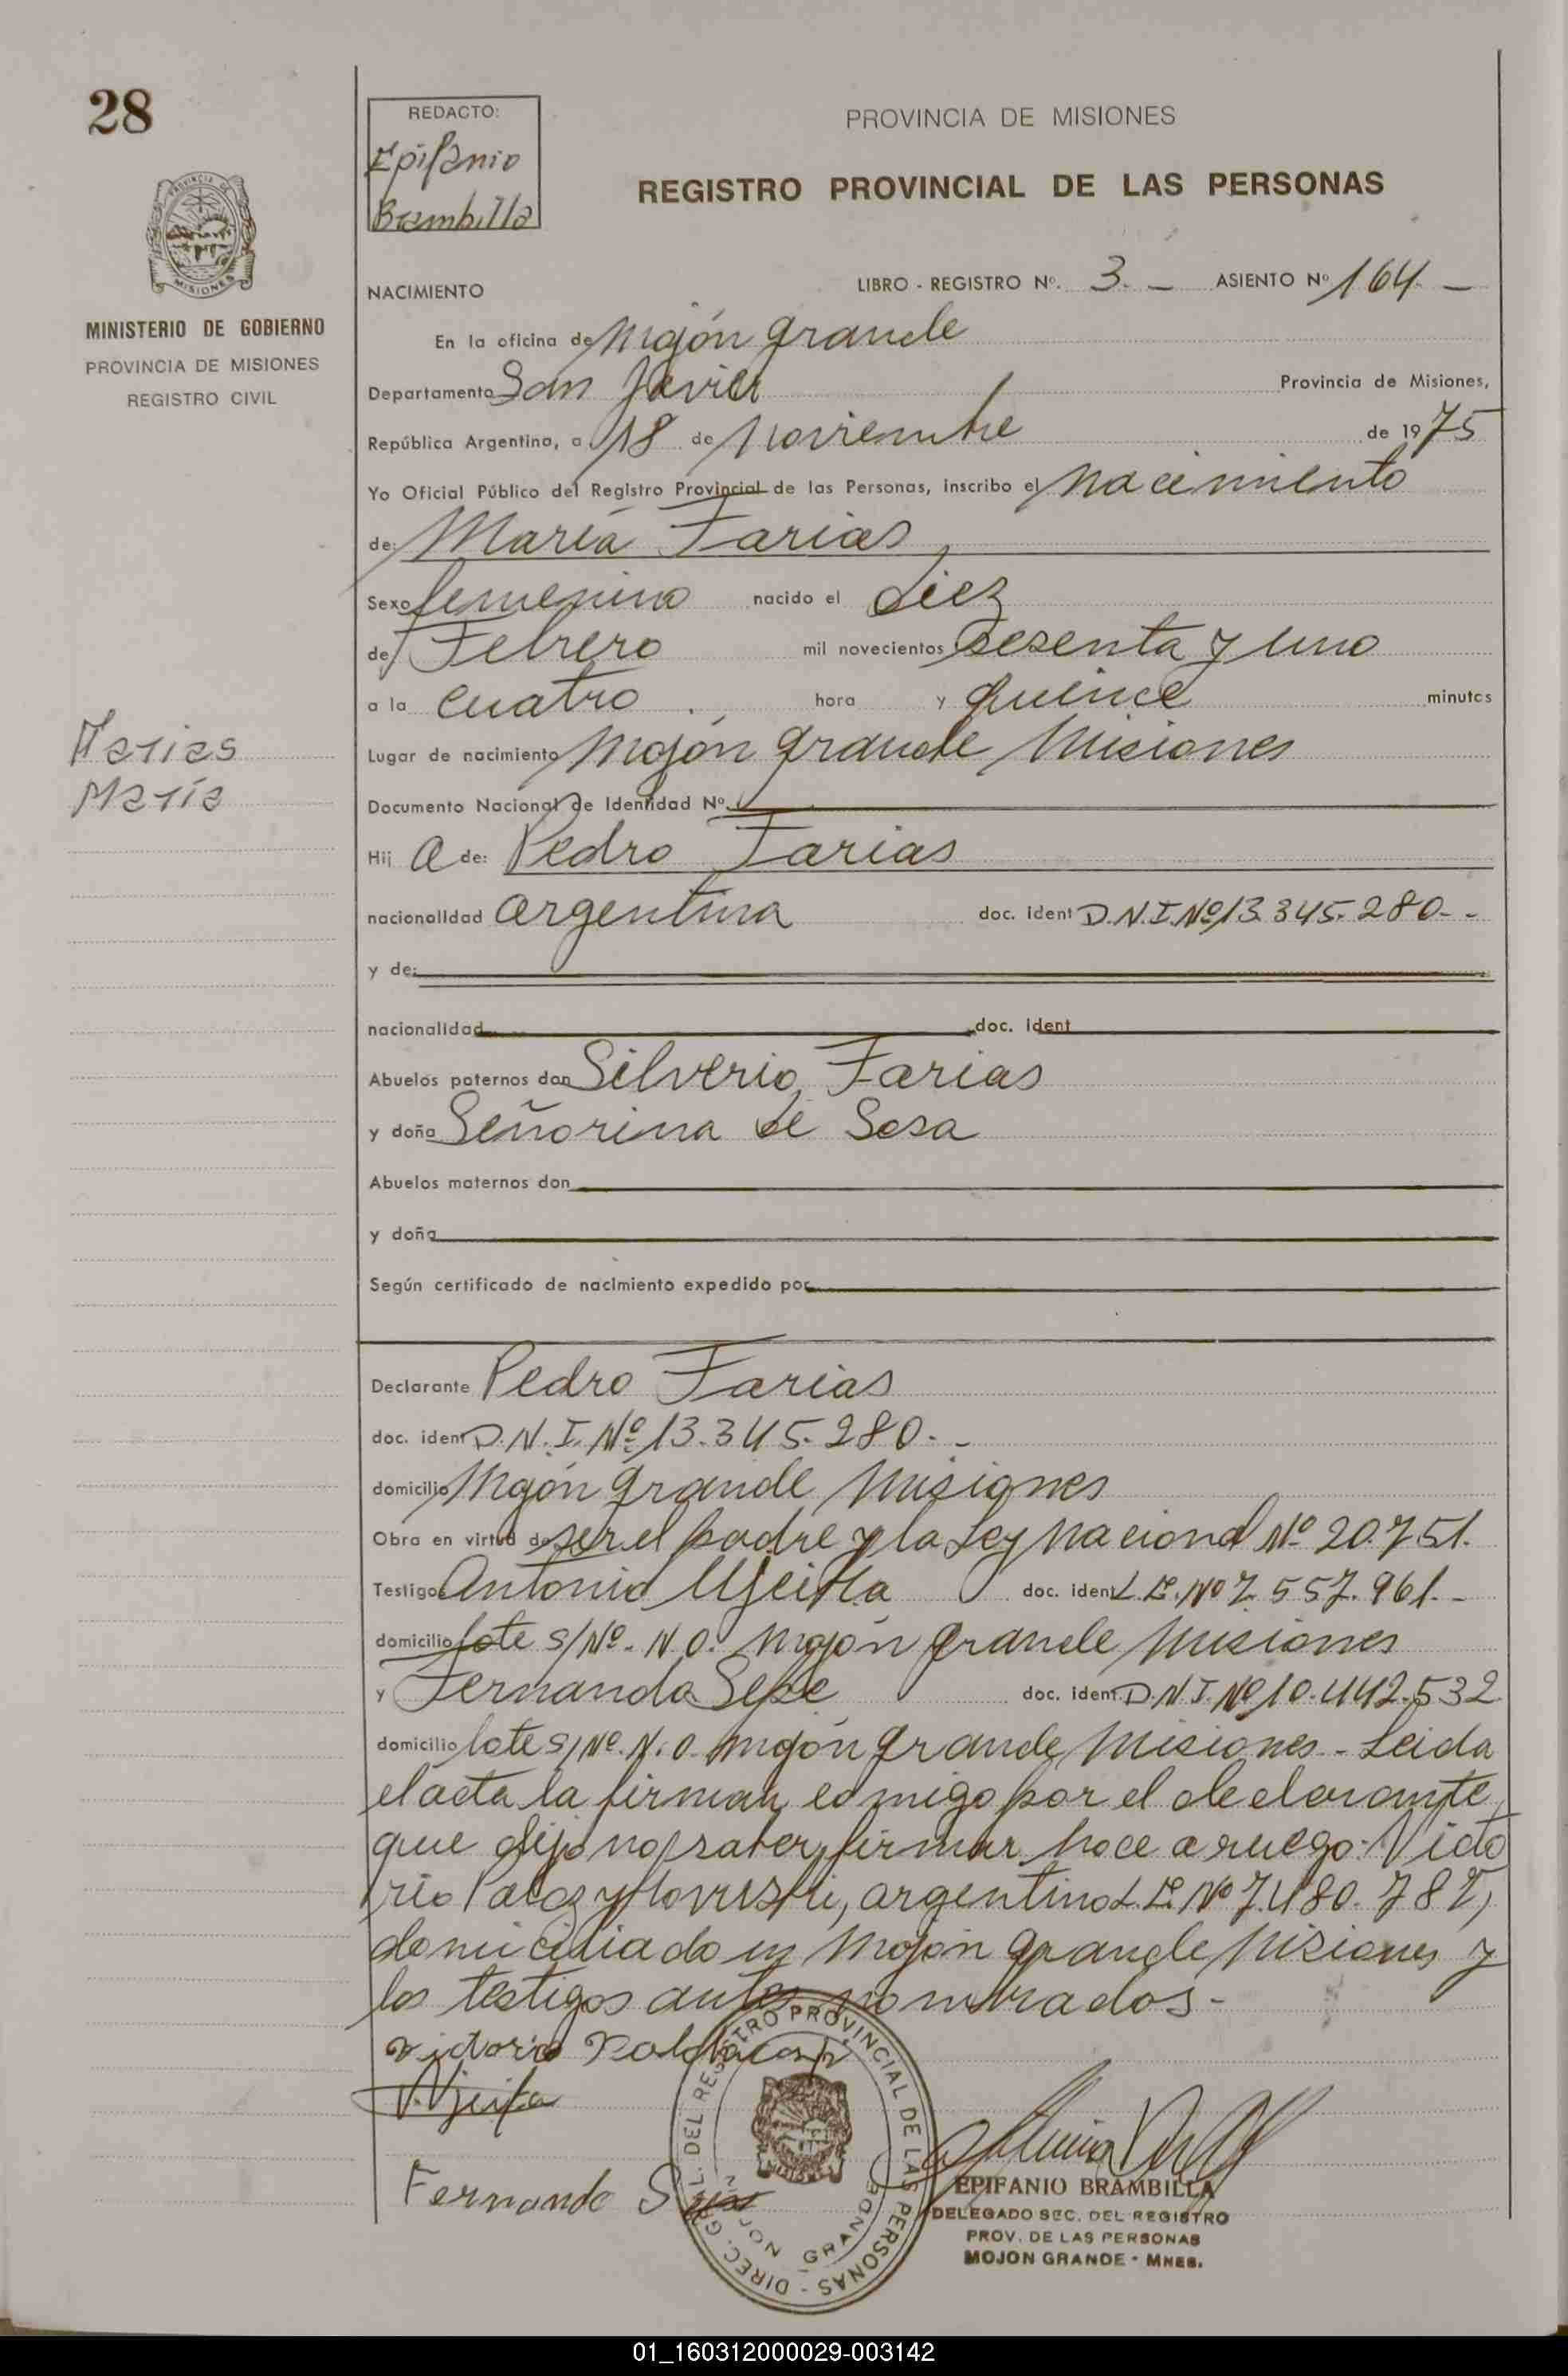 28
REDACTO:
Epifanio
Brambilla
PROVINCIA DE MISIONES
REGISTRO PROVINCIAL DE LAS PERSONAS
MISIONES
MINISTERIO DE GOBIERNO
PROVINCIA DE MISIONES
REGISTRO CIVIL
NACIMIENTO
LIBRO - REGISTRO Nº. 3.- ASIENTO Nº 164.-
En la oficina de Mojón grande
Departamento San Javier Provincia de Misiones,
República Argentina, a 18 de Noviembre de 1975
Yo Oficial Público del Registro Provincial de las Personas, inscribo el Nacimiento
de: María Farias
Sexo femenino nacido el diez
de Febrero mil novecientos sesenta y uno
a la cuatro hora y quince minutos
Farias
María
Lugar de nacimiento Mojón grande Misiones
Documento Nacional de Identidad Nº.
Hij a de: Pedro Farias
nacionalidad argentina doc. ident D.N.I. Nº 13.345.280.-
y de:
nacionalidad doc. ident
Abuelos paternos don Silverio Farias
y doña Señorina de Sosa
Abuelos maternos don
y doña
Según certificado de nacimiento expedido por
Declarante Pedro Farias
doc. ident D.N.I. Nº 13.345.280.-
domicilio Mojón grande Misiones
Obra en virtud de ser el padre y la Ley Nacional Nº 20.751.
Testigos Antonio doc. ident L.E. Nº 7.557.961.-
domicilio lote s/Nº. N.O. Mojón grande Misiones
y Fernando doc. ident. D.N.I. Nº 10.442.532
domicilio lote s/Nº. N.O. Mojón grande Misiones.- Leida
el acta la firman conmigo por el declarante
que dijo no saber firmar hace a ruego: Victo
rio argentino L.E. Nº 7.480.782,
domiciliado en Mojón grande Misiones y
los testigos antes nombrados.-
Victorio
Fernando
DIREC. GRAL. DEL REGISTRO PROVINCIAL DE LAS PERSONAS -
MOJON GRANDE
EPIFANIO BRAMBILLA
DELEGADO SEC. DEL REGISTRO
PROV. DE LAS PERSONAS
MOJON GRANDE - MNES.
01_160312000029-003142